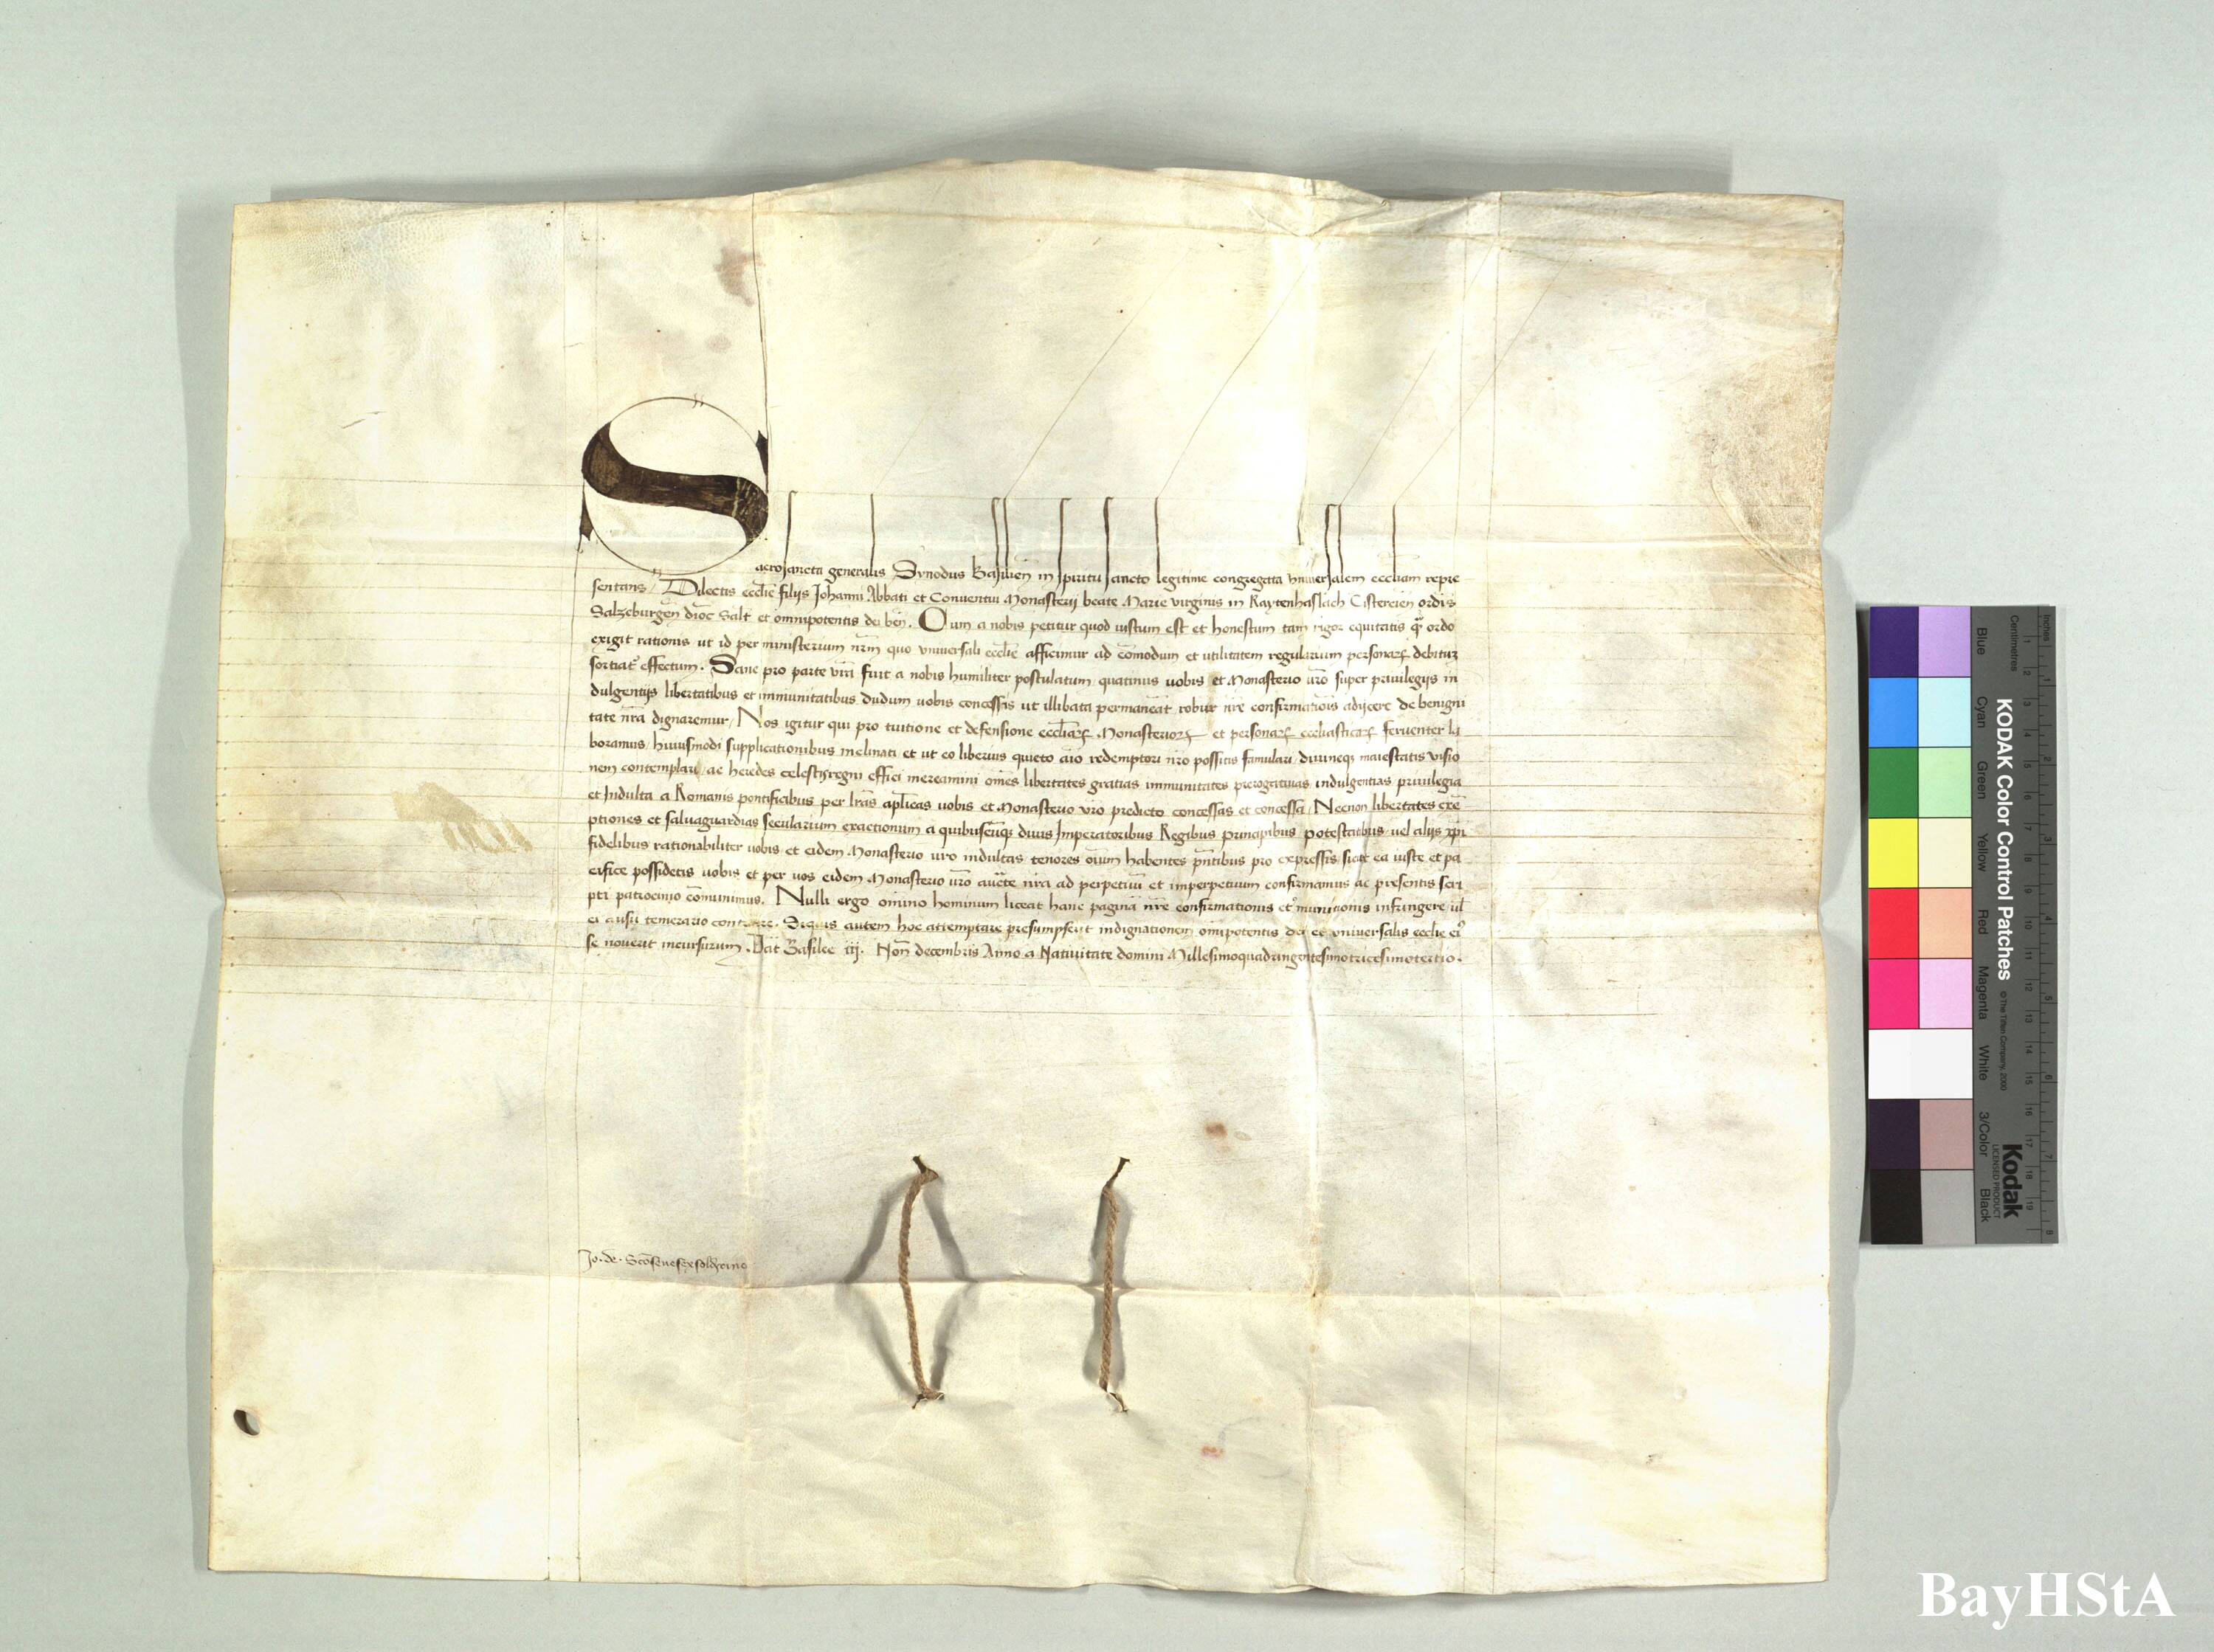 Sacrosancta generalis Synodus Basilien̄ in spiritu sancto legitime congregata vniuersalem eccl̄iam repre
sentans / Dilectis eccl̄ie filijs Johanni Abbati et Conuentui Monasterij beate Marie virginis in Raytenhaslach Cistercien̄ ordīs
Salzeburgen̄ dioc̄ Salt̄ et omnipotentis dei ben̄. Cum a nobis petitur quod iustum est et honestum tam rigor equitatis q̄ ordo
exigit rationis ut id per ministerium nr̄m quo vniuersali eccl̄ie afficimur ad cōmodum et utilitatem regularium personaꝝ debituꝫ
sortiat᷑ effectum. Sane pro parte vr̄a fuit a nobis humiliter postulatum quatinus uobis et Monasterio ur̄o super priuilegijs in
dulgentijs libertatibus et immunitatibus dudum uobis concessis ut illibata permaneāt robur nr̄e confirmatiōis adijcere de benigni
tate nr̄a dignaremur / Nos igitur qui pro tuitione et defensione eccl̄iaꝝ Monasterioꝝ et personaꝝ eccl̄iasticaꝝ feruenter la
boramus / huiusmodi supplicationibus inclinati et ut eo liberius quieto aīo redemptori nr̄o possitis famulari diuineqꝫ maiestatis visio
nem contemplari ac heredes celestis regni effici mereamini om̄es libertates gratias immunitates prerogatiuas indulgentias priuilegia
et Indulta a Romanis pontificibus per lr̄as apl̄icas uobis et Monasterio vr̄o predicto concessas et concessa / Necnon libertates exē
ptiones et saluaguardias secularium exactionum a quibuscūqꝫ diuis Imperatoribus Regibus principibus potestatibus uel alijs xp̄i
fidelibus rationabiliter uobis et eidem Monasterio ur̄o indultas tenores oīum habentes pn̄tibus pro expressis sicut ea iuste et pa
cifice possidetis uobis et per uos eidem Monasterio ur̄o auc̄te nr̄a ad perpetuū et imperpetuum confirmamus ac presentis scri
pti patrocinio cōmunimus. Nulli ergo om̄ino hominum liceat hanc paginā nr̄e confirmationis et municionis infringere ul̄
ei ausu temerario contraire. Siquis autem hoc attemptare presumpserit indignationem om̄ipotentis dei et vniuersalis eccl̄ie ei᷒
se nouerit incursurum. Dat̄ Basilee iij. Non̄ decembris Anno a Natiuitate domini Millesimoquadringentesimotricesimotertio.
Jo. de
BayHStA
KODAK Color Control Patches
© The Tiffen Company, 2000
Kodak
LICENSED PRODUCT
Blue Cyan Green Yellow Red Magenta White 3/Color Black
Inches
Centimetres